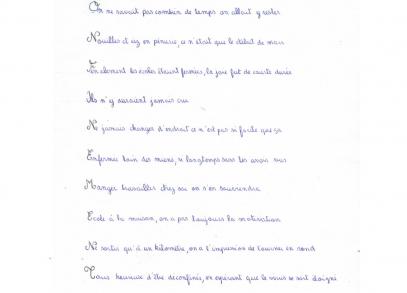 On ne savait pas combien de temps on allait y rester
Nouilles et riz en pénurie, ce n'était que le début de mars
Finalement les écoles étaient fermées, la joie fut de courte durée
Ils n'y auraient jamais cru
Ne jamais changer d'endroit ce n'est pas si facile que ça
Enfermée loin des miens, si longtemps sans les avoir vus
Manger travailler chez soi on s'en souviendra
Ecole à la maison, on a pas toujours la motivation
Ne sortir qu'à un kilomètre, on a l'impression de tourner en rond
Tous heureux d'être déconfinés, en espérant que le virus se soit éloigné